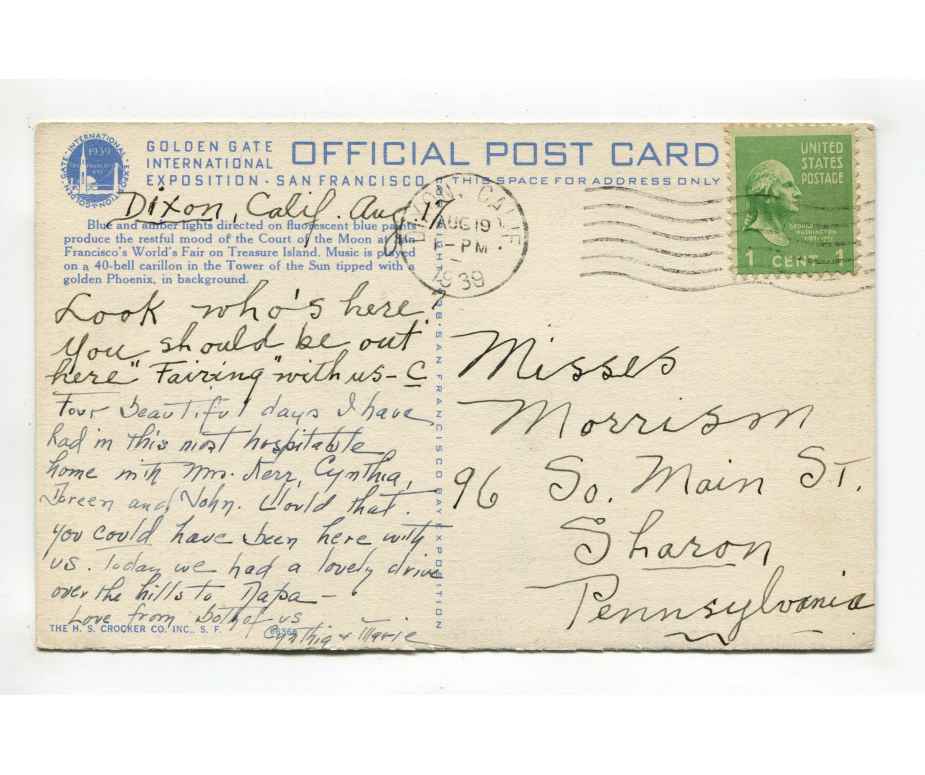 GOLDEN GATE
INTERNATIONAL
EXPOSITION · SAN FRANCISCO
OFFICIAL POST CARD
THIS SPACE FOR ADDRESS ONLY
1939
UNITED
STATES
POSTAGE
1 CENT
DIXON, CALIF.
AUG 19
1-PM
1939
Dixon, Calif. Aug. 17
Blue and amber lights directed on fluorescent blue
produce the restful mood of the Court of the Moon at San
Francisco's World's Fair on Treasure Island. Music is played
on a 40-bell carillon in the Tower of the Sun tipped with a
golden Phoenix, in background.
Look who's here
You should be out
here "Fairing" with us - C
Four beautiful days I have
had in this most hospitable
home with Mrs. Cynthia,
Doreen and John. Would that
you could have been here with
us. Today we had a lovely drive
over the hills to Napa -
Love from both of us
Cynthia + Marie
Misses
Morrison
96 So. Main St.
Sharon
Pennsylvania
SAN FRANCISCO BAY EXPOSITION
THE H. S. CROCKER CO. INC., S. F.